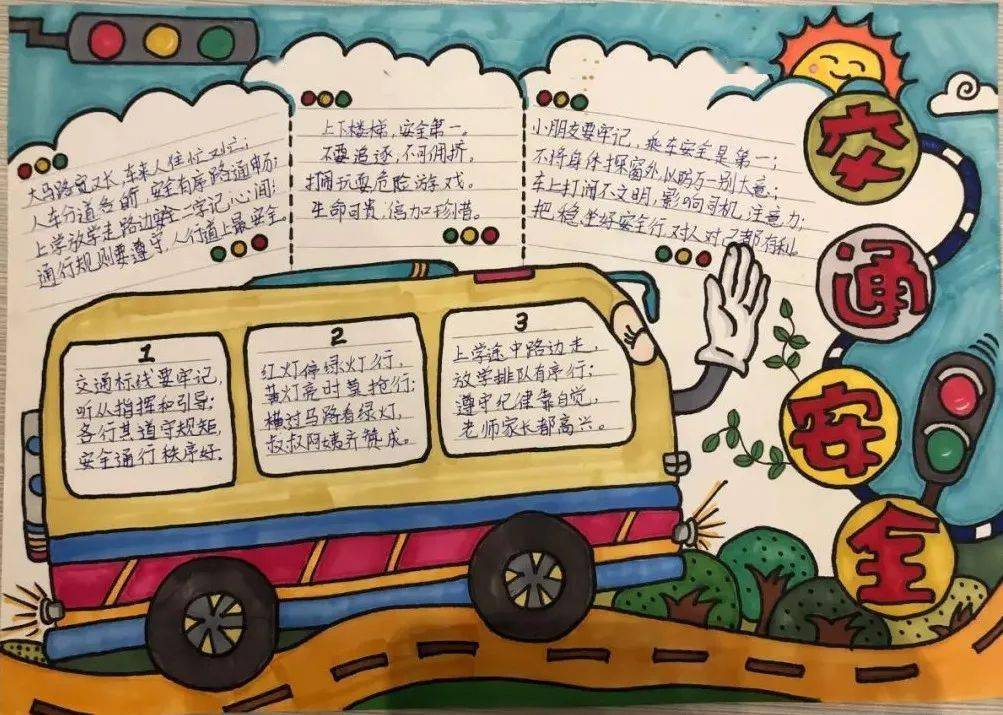 大马路宽又长,车来人往忙又忙;
人车分道各自前,安全有序路通畅;
上学放学走路边,安全二字记心间;
通行规则要遵守,人行道上最安全。
上下楼梯,安全第一。
不要追逐,不可拥挤,
打闹玩耍危险游戏。
生命可贵,倍加珍惜。
小朋友要牢记,乘车安全是第一;
不将身体探窗外,以防万一别大意;
车上打闹不文明,影响司机注意力;
把稳坐好安全行,对人对己都有利。
交通安全
1
交通标线要牢记,
听从指挥和引导;
各行其道守规矩,
安全通行秩序好。
2
红灯停绿灯行,
黄灯亮时莫抢行;
横过马路看绿灯,
叔叔阿姨齐赞成。
3
上学途中路边走,
放学排队有序行;
遵守纪律靠自觉,
老师家长都高兴。